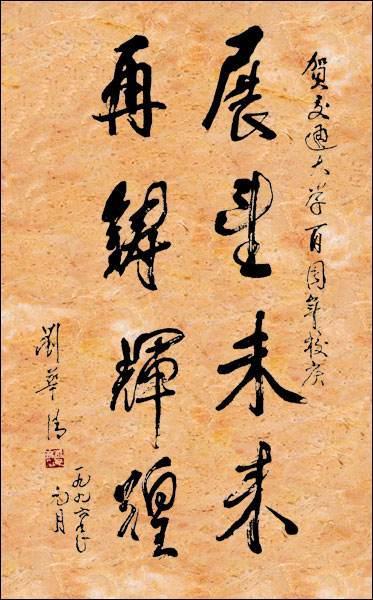 賀交通大学百周年校庆
展望未来
再鑄輝煌
劉華清
一九九六年
元月